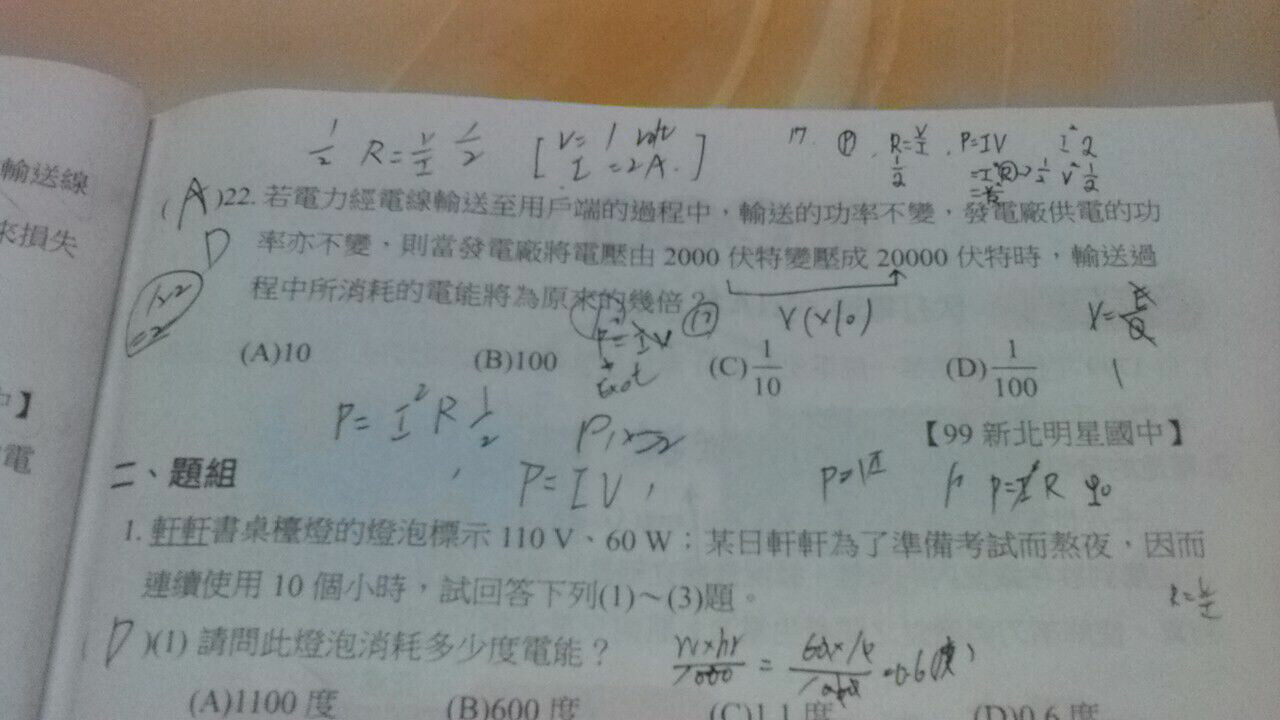 輸送線
來損失
中】
電
1/2 R=V/I 1/2 [V=1 volt I=2A.]
17. P, R=V/I, P=IV I 2
1/2 =I²R→1/2 V 1/2
(A)22. 若電力經電線輸送至用戶端的過程中，輸送的功率不變，發電廠供電的功
D 率亦不變，則當發電廠將電壓由 2000 伏特變壓成 20000 伏特時，輸送過
程中所消耗的電能將為原來的幾倍？
1x2=2
V(x10)
(A)10 (B)100 (C)1/10 (D)1/100
P=I²R 1/2
【99 新北明星國中】
二、題組
P=IV
P=I²R
1. 軒軒書桌檯燈的燈泡標示 110 V、60 W；某日軒軒為了準備考試而熬夜，因而
連續使用 10 個小時，試回答下列(1)～(3)題。
R=V/I
D)(1) 請問此燈泡消耗多少度電能？
(A)1100 度 (B)600 度 (C)1.1 度 (D)0.6 度